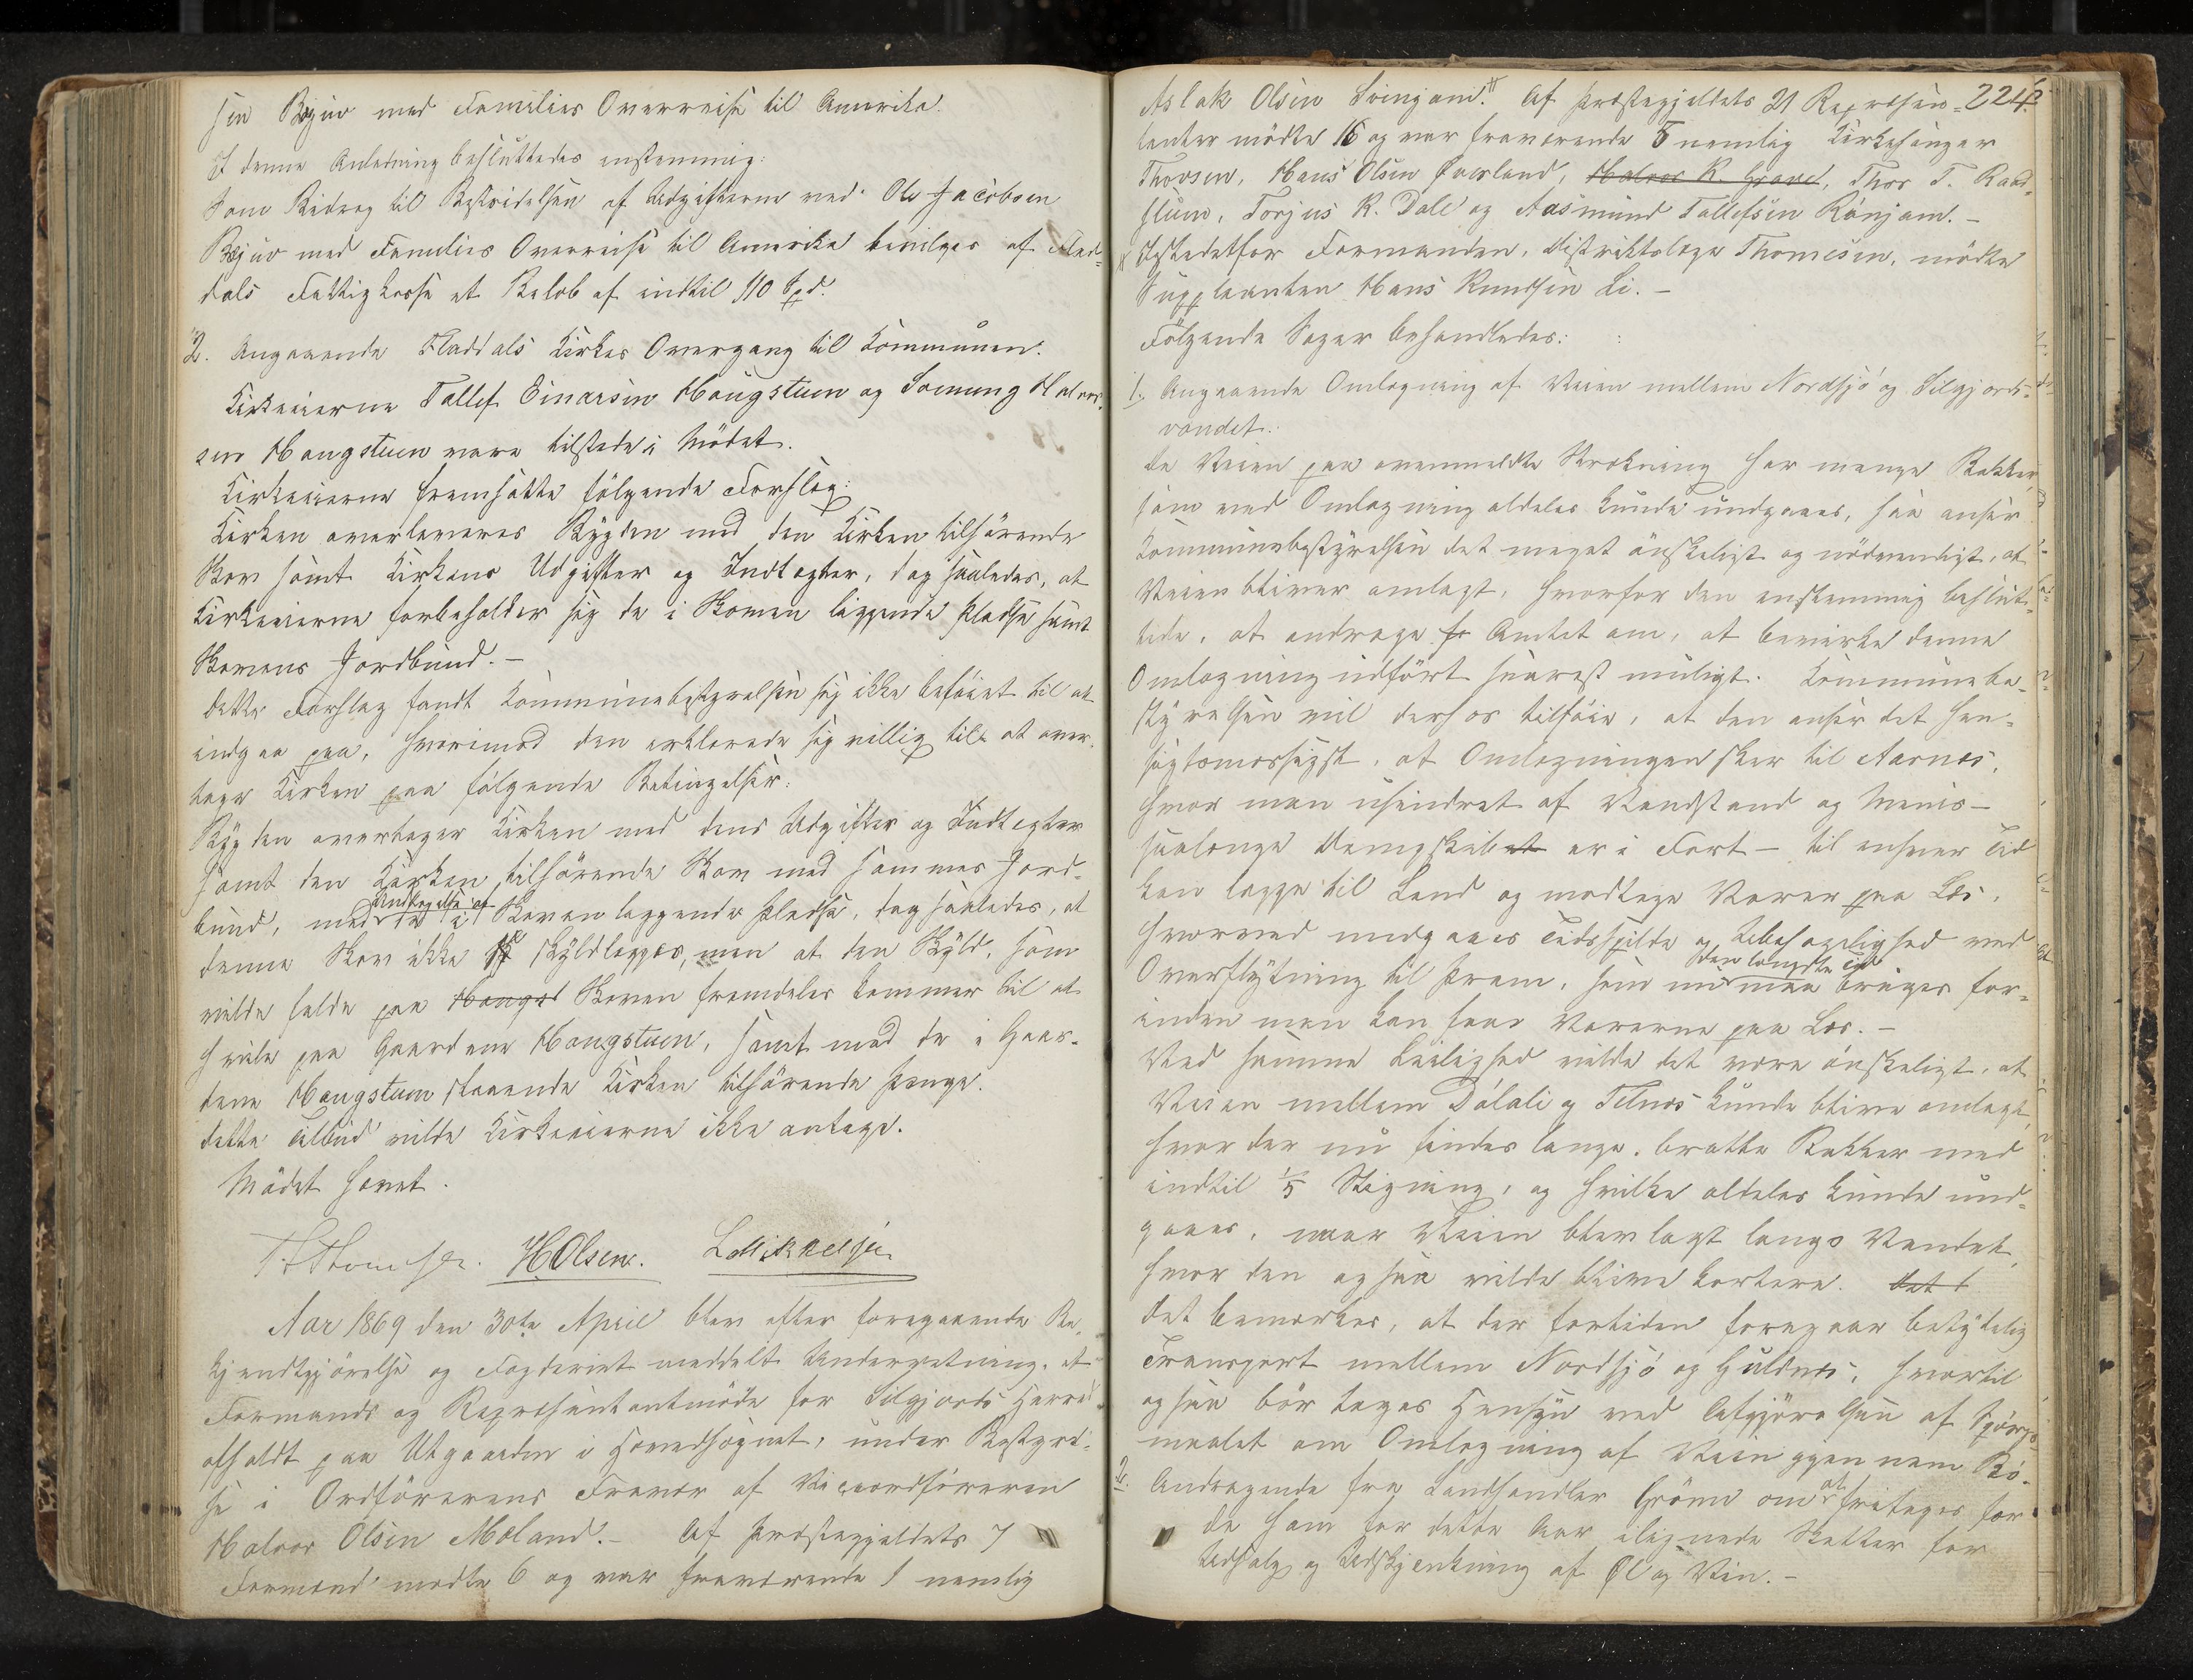 sen Bøjuv med Families Overreise til Amerika.
I denne Anledning besluttedes enstemmig:
Som Bidrag til Bestridelsen af Udgifterne ved Ole Jacobsen
Bøjuv med Families Overreise til Amerika bevilges af Flad-
dals Fattigkasse et Beløb af indtil 110 Spd.
2. Angaaende Fladdals Kirkes Overgang til Kommunen.
Kirkeeierne Tallef Einarsen Haugstuen og Sveinung Halvor-
sen Haugstuen vare tilstede i Mødet.
Kirkeeierne fremsatte følgende Forslag:
Kirken overleveres Bygden med den Kirken tilhørende
Skov samt Kirkens Udgifter og Indtægter, dog saaledes, at
Kirkeeierne forbeholder sig de i Skoven liggende Pladse samt
Skovens Jordbund.-
Dette Forslag fandt Kommunebestyrelsen sig ikke beføiet til at
indgaa paa, hvorimod den erklærede sig villig til at over-
tage Kirken paa følgende Betingelser:
Bygden overtager Kirken med dens Udgifter og Indtægter
samt den Kirken tilhørende Skov med sammes Jord-
bund, med Undtagelse af de i Skoven liggende Pladse, dog saaledes, at
denne Skov ikke skyldlægges, men at den Skyld, som
vilde falde paa Haugst Skoven fremdeles kommer til at
hvile paa Gaardene Haugstuen, samt med de i Gaar-
dene Haugstuen staaende Kirken tilhørende Penge.
Dette Tilbud vilde Kirkeeierne ikke antage.
Mødet hævet.
Thomesen. HOlsen. LMikkelsen
Aar 1869 den 30te April blev efter foregaaende Be-
kjendtgjørelse og Fogderiet meddelt Underretning, et
Formands og Repræsentantmøde for Silgjords Herred
afholdt paa Utgaarden i Hovedsognet, under Bestyrel-
se i Ordførerens Fravær af Viceordføreren
Halvor Olsen Moland.- Af Præstegjeldets 7
Formænd mødte 6 og var fraværende 1 nemlig
224
Aslak Olsen Svinganr. Af Præstegjeldets 21 Repræsen-
tanter mødte 16 og var fraværende 5 nemlig Kirkesanger
Thorsen, Hans Olsen Havsland, Halvor K. Graver, Thor T. Rand-
slien, Torjus K. Dale og Aasmund Tallefsen Rønjom.-
Istedetfor Formanden, Distriktslæge Thomesen, mødte
Suppleanten Hans Knudsen Li.-
Følgende Sager behandledes:
1. Angaaende Omlægning af Veien mellem Nordsjø og Silgjords-
vandet.
Da Veien paa ovenmeldte Strækning har mange Bakker,
som ved Omlægning aldeles kunde undgaaes, saa anser
Kommunebestyrelsen det meget ønskeligt og nødvendigt, at
Veien bliver omlagt, hvorfor den enstemmig beslut-
tede, at andrage fr Amtet om, at bevirke denne
Omlægning udført snarest muligt. Kommunebe-
styrelsen vil derhos tilføie, at den anser det hen-
sigtsmæssigst, at Omlægningen sker til Aarnes,
hvor man uhindret af Vandstand og Menis-
saalænge Dampskibet er i Fart- til enhver Tid
kan lægge til Land og modtage Varer paa Læs,
hvorved undgaaes Tidsspilde og Ubehagelighed ved
Overflytning til Pram, som nu den længste Tid maa bruges for-
inden man kan faae Varerne paa Læs.-
Ved samme Leilighed vilde det være ønskeligt, at
Veien mellem Dalali og Telnæs kunde blive omlagt,
hvor der nu findes lange, bratte Bakker med
indtil 1/5 Stigning, og hvilke aldeles kunde und-
gaaes, naar Veien blev lagt langs Vandet,
hvor den ogsaa vilde blive kortere. Det b
Det bemærkes, at der fortiden foregaar betydelig
Transport mellem Nordsjø og Guldnæs, hvortil
ogsaa bør tages Hensyn ved Afgjørelsen af Spørgs-
maalet om Omlægning af Veien gjennem Bø.
2. Andragende fra Landhandler Grønn om at fritages for
de ham for dette Aar ilignede Skatter for
Udsalg og Udskjenkning af Øl og Vin.-